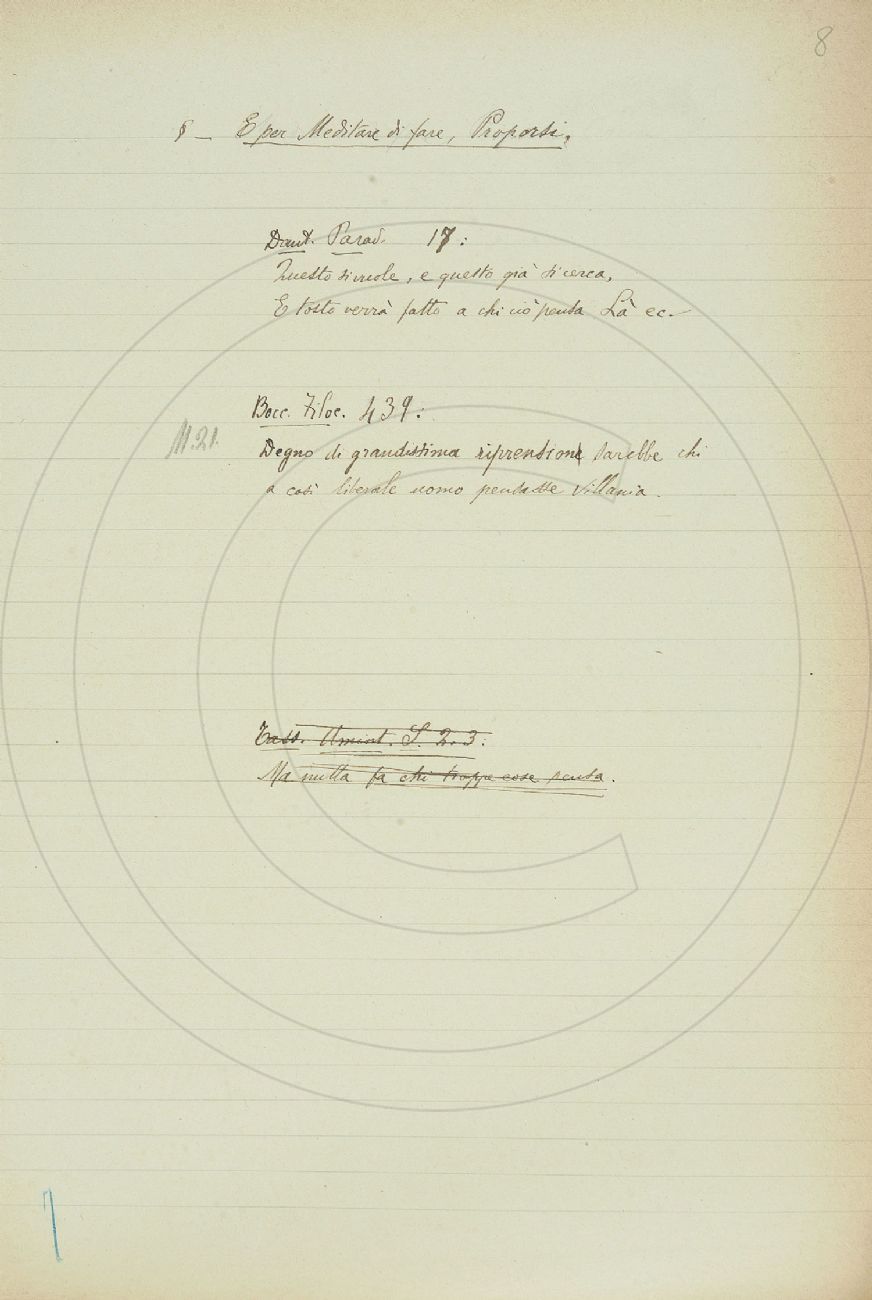 8
§ — E per Meditare di fare, Proporsi.
Dant. Parad. 17:
Questo si vuole, e questo già si cerca,
E tosto verrà fatto a chi ciò pensa Là ec.-
Bocc. Filoc. 439:
M.21.
Degno di grandissima riprensione sarebbe chi
a così liberale uomo pensasse villania.
Tass. Amint. S. 2.3:
Ma nulla fa chi troppe cose pensa.